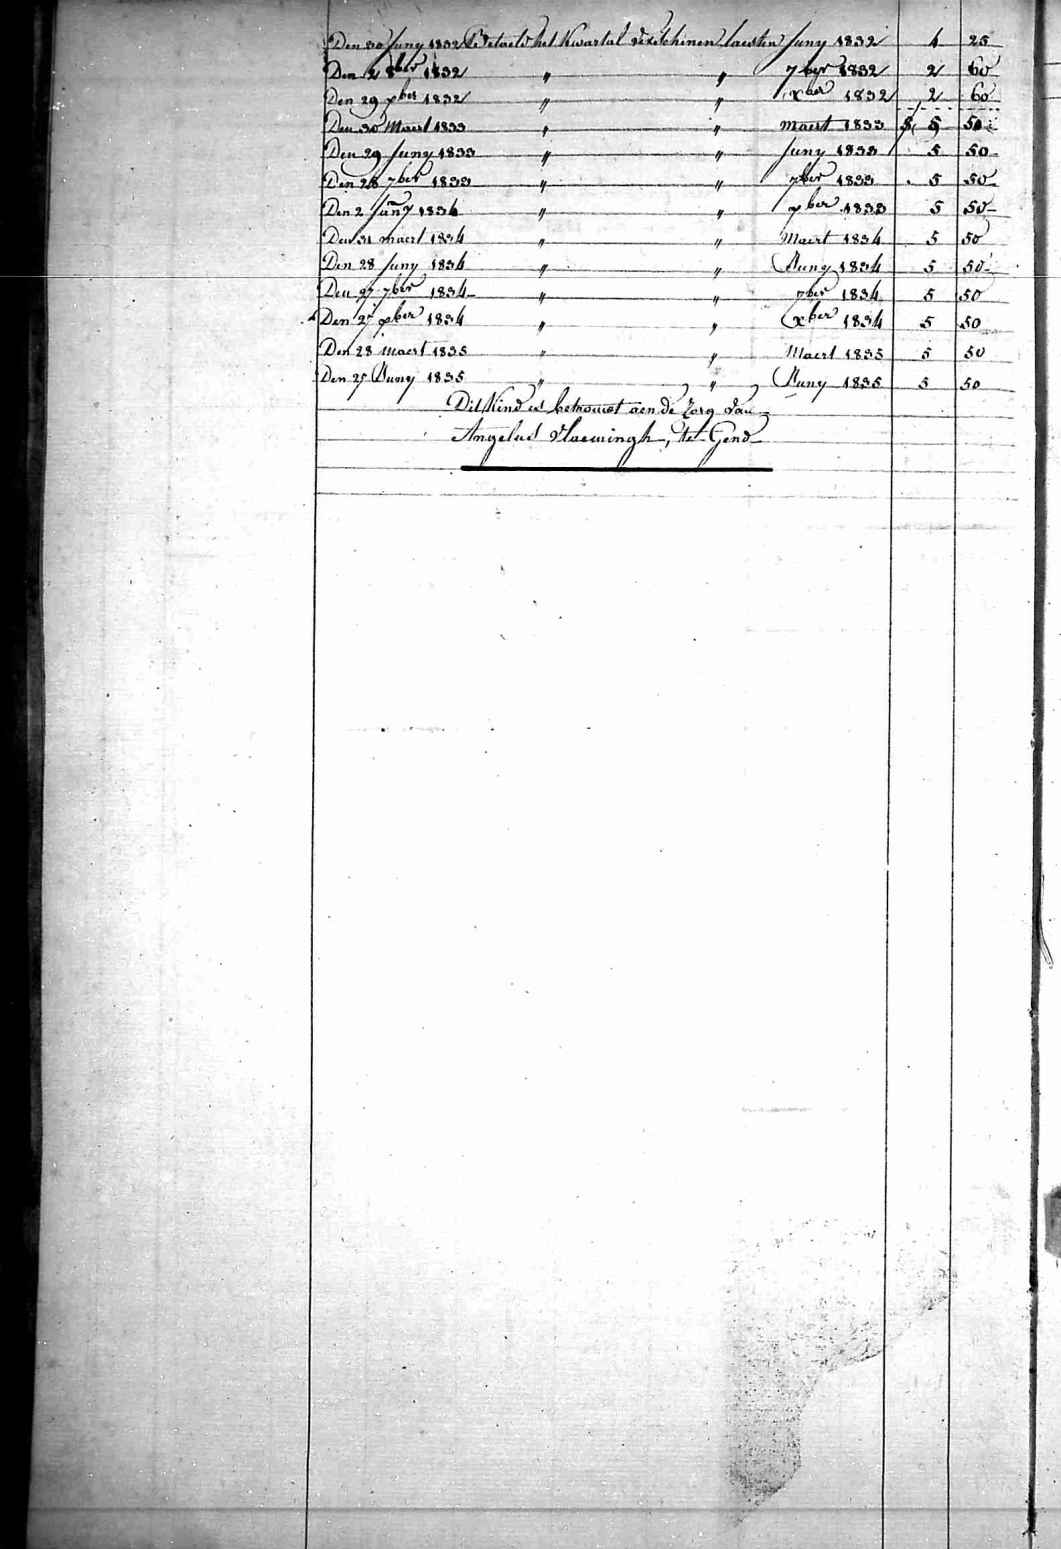 Den 30 Juny 1832 Betaeld het Kwartal verschinen laesten Juny 1832 4 25
Den 2 8ber 1832 " " 7ber 1832 2 60
Den 29 xber 1832 " " xber 1832 2 60
Den 30 Maert 1833 " " maert 1833 5 50
Den 29 Juny 1833 " " Juny 1833 5 50
Den 28 7ber 1833 " " 7ber 1833 5 50
Den 2 Jany 1834 " " xber 1833 5 50
Den 31 maert 1834 " " Maert 1834 5 50
Den 28 Juny 1834 " " Juny 1834 5 50
Den 27 7ber 1834 " " 7ber 1834 5 50
Den 27 xber 1834 " " xber 1834 5 50
Den 28 Maert 1835 " " Maert 1835 5 50
Den 27 Juny 1835 " " Juny 1835 5 50
Dit Kind is betrouwt aen de Zorg van
Angelus Vlaemingh, te Gend